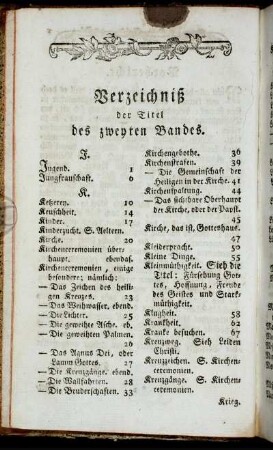 Verzeichniß
der Titel
des zweyten Bandes.
J.
Jugend. 1
Jungfrauschaft. 6
K.
Ketzeren. 10
Keuschheit. 14
Kinder. 17
Kinderzucht. S. Aeltern.
Kirche. 20
Kirchenceremonien über-
haupt. ebendas.
Kirchenceremonien, einige
besondere; nämlich
— Das Zeichen des heili-
gen Kreuzes. 23
— Das Weihwasser. ebend.
— Die Lichter. 25
— Die geweihte Asche. eb.
— Die geweihten Palmen.
26
— Das Agnus Dei, oder
Lamm Gottes. 27
— Die Kreuzgänge. ebend.
— Die Wallfahrten. 28
— Die Bruderschaften. 33
Kirchengebothe. 36
Kirchenstrafen. 39
— Die Gemeinschaft der
Heiligen in der Kirche. 41
Kirchenspaltung. 44
— Das sichtbare Oberhaupt
der Kirche, oder der Papst.
47
Kirche, das ist, Gotteshaus.
50
Kleiderpracht. 52
Kleine Dinge. 55
Kleinmüthigkeit. Sieh die
Titel: Fürsehung Got-
tes, Hoffnung, Freude
des Geistes und Stark-
müthigkeit.
Klugheit. 58
Krankheit. 62
Kranke besuchen. 67
Kreuzweg. Sieh Leiden
Christi.
Kreuzzeichen. S. Kirchen-
ceremonien.
Kreuzgänge. S. Kirchen-
ceremonien.
Krieg.